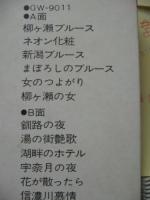 ●GW-9011
●A面
柳ヶ瀬ブルース
ネオン化粧
新潟ブルース
まぼろしのブルース
女のつながり
柳ヶ瀬の女
●B面
釧路の夜
湯の街艶歌
湖畔のホテル
宇奈月の夜
花が散ったら
信濃川慕情